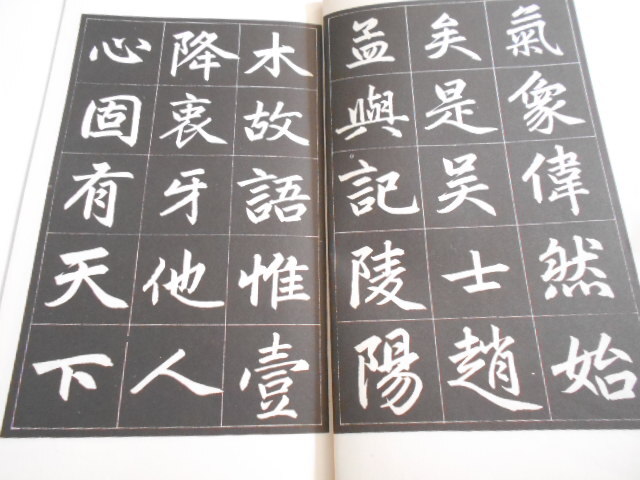 氣象偉然始
矣是吴士趙
孟與記陵陽
木故語惟壹
降衷牙他人
心固有天下